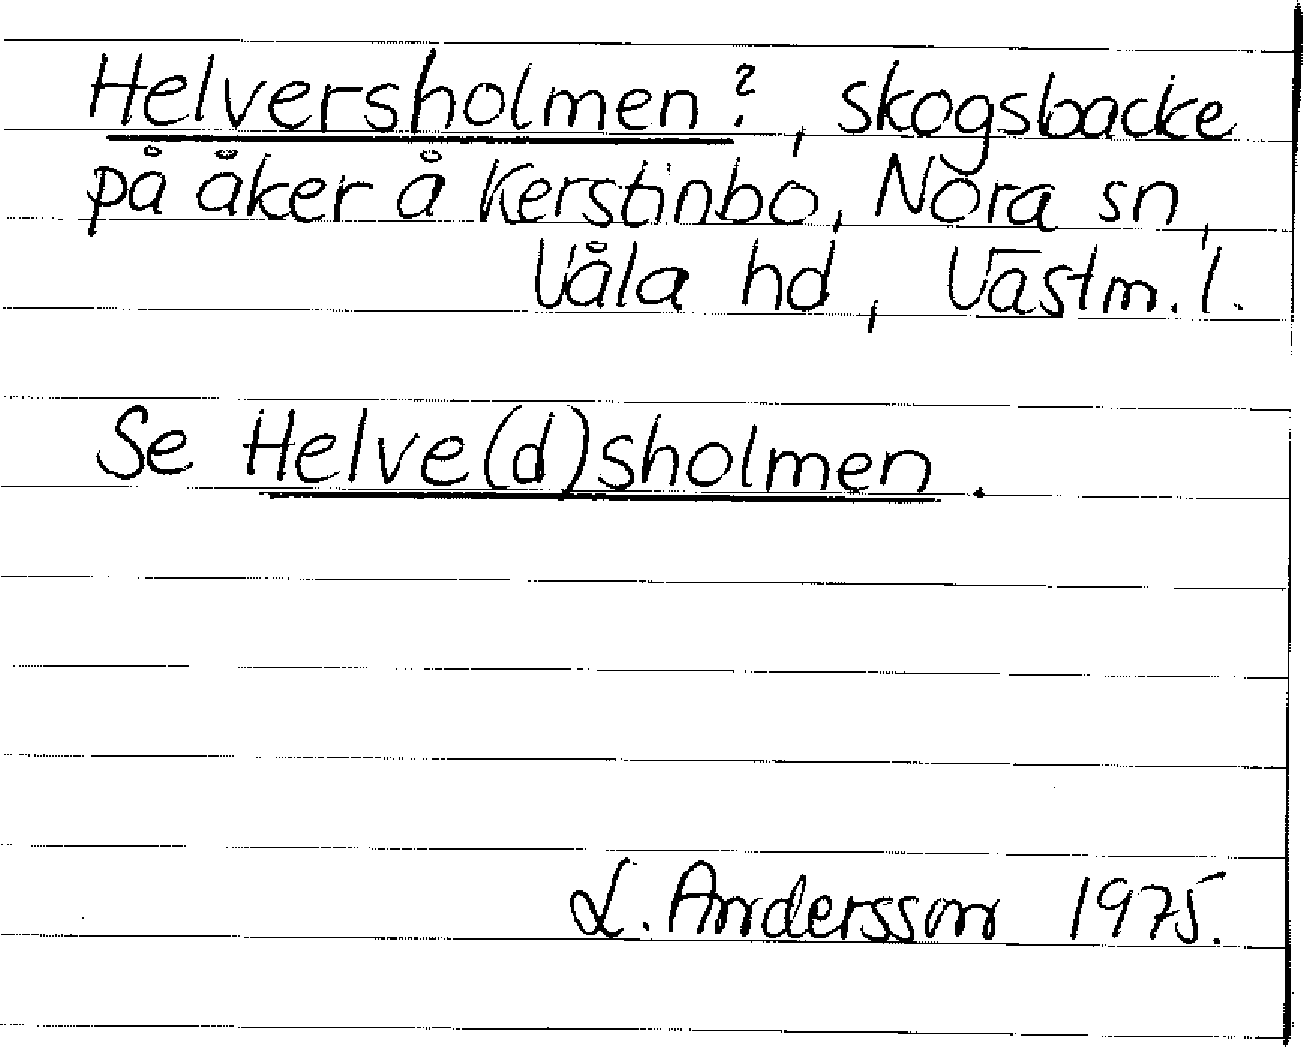 Helversholmen?, skogsbacke
på åker å Kerstinbo, Nora sn,
Våla hd, Västm. l.
Se Helve(d)sholmen.
L. Andersson 1975.